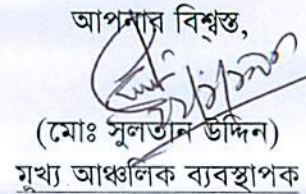 আপনার বিশ্বস্ত,
(মোঃ সুলতান উদ্দিন)
মূখ্য আঞ্চলিক ব্যবস্থাপক